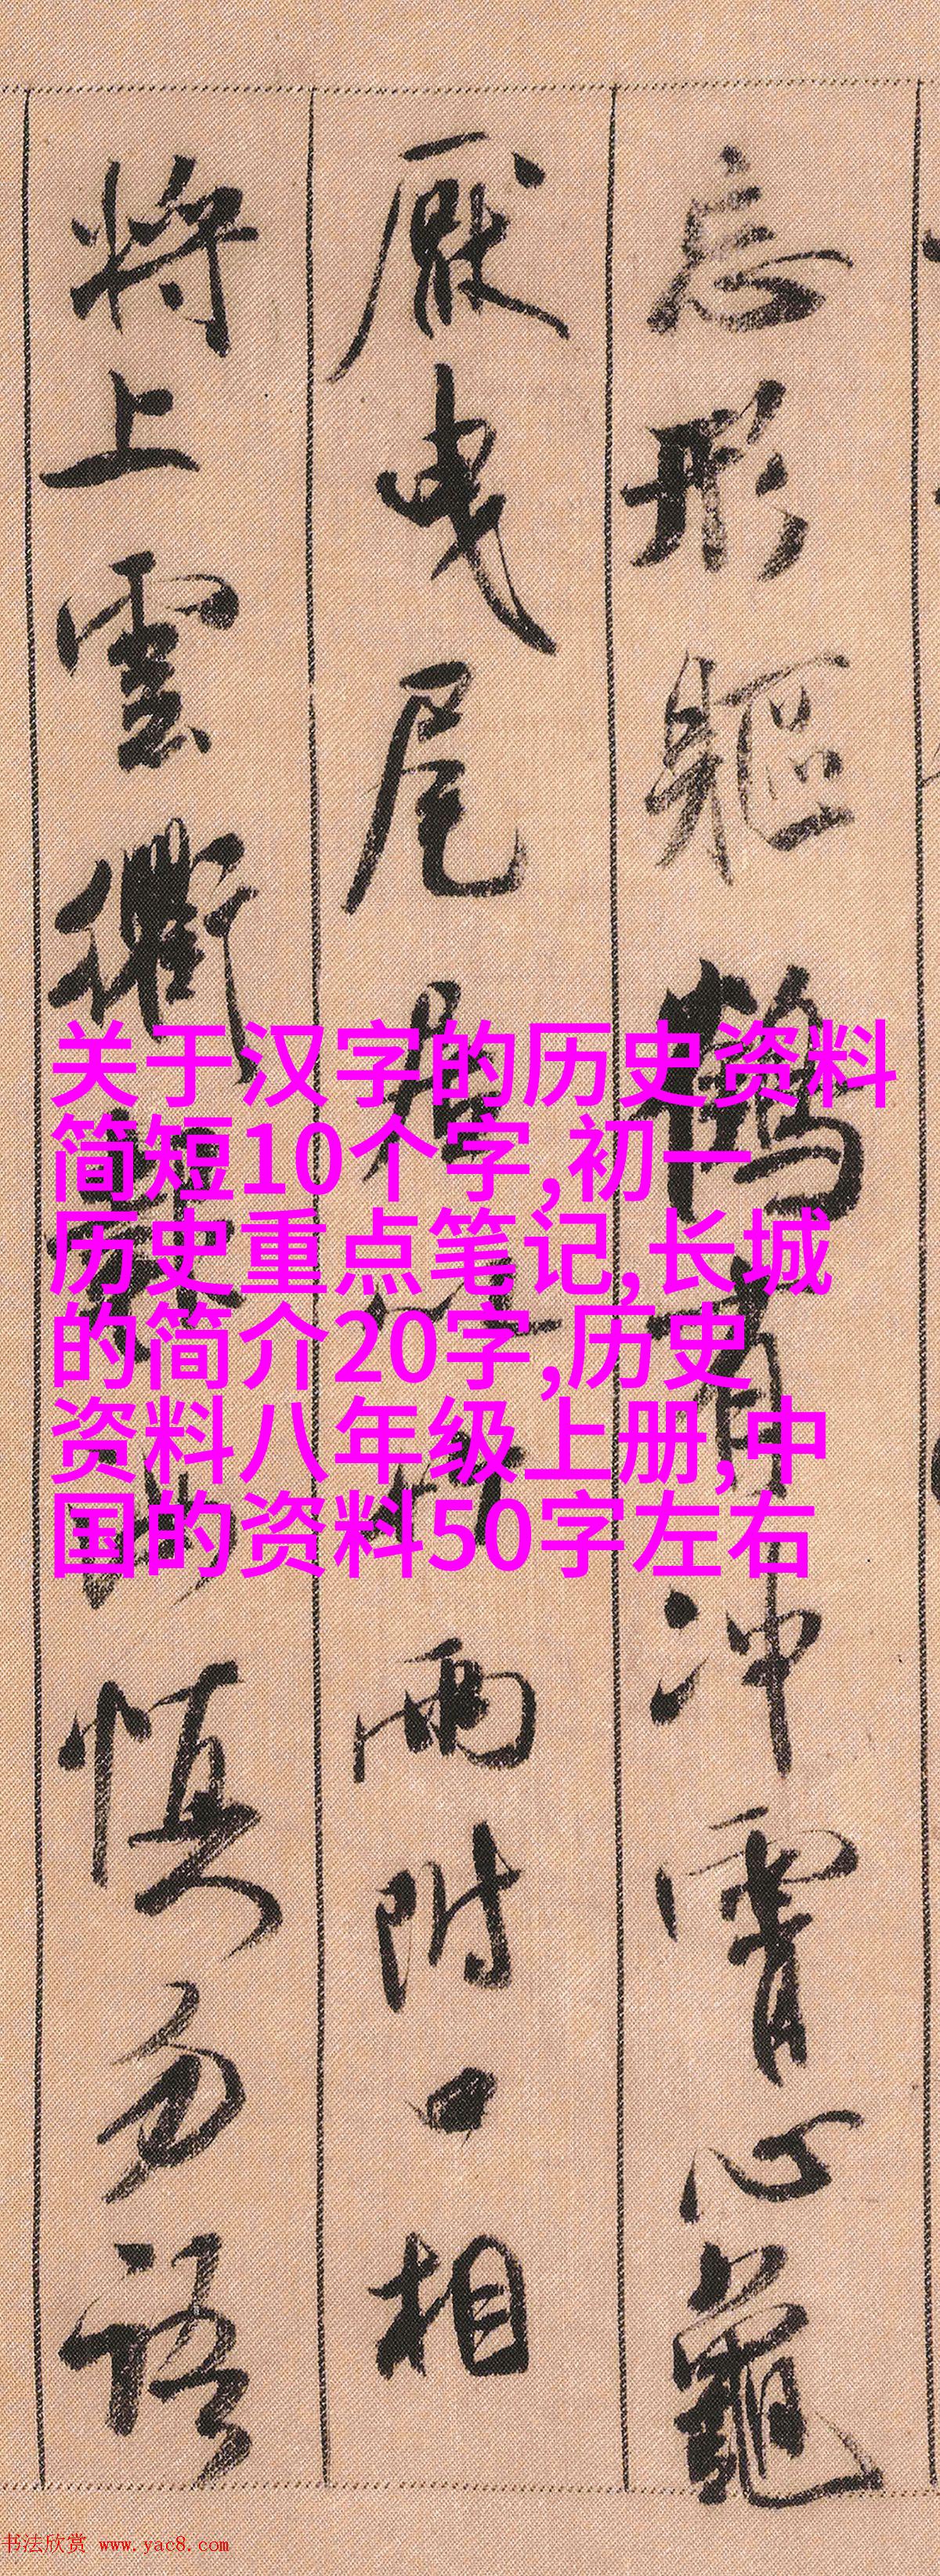 忘形軀鶴有沖霄心龜
厭曳尾居以竹兩附口相
將上雲衢報汝慎勿語
关于汉字的历史资料
简短10个字,初一
历史重点笔记,长城
的简介20字,历史
资料八年级上册,中
国的资料50字左右
书法欣赏 www.yac8.com